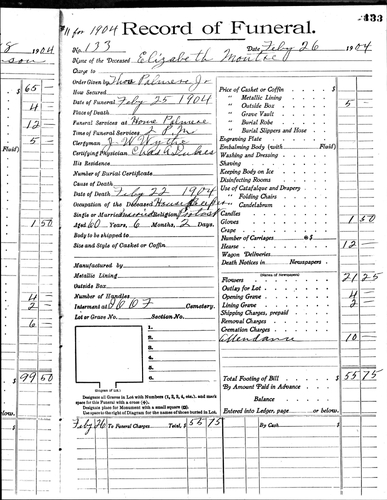 133
11 for 1904 Record of Funeral.
No. 133 Date Feby 26 1904
Name of the Deceased Elizabeth
Charge to
Order Given by Thos Jr
How Secured
Date of Funeral Feby 25 1904
Place of Death
Funeral Services at Home
Time of Funeral Services 2 P M
Clergyman J W
Certifying Physician Chas
His Residence
Number of Burial Certificate
Cause of Death
Date of Death Feby 22 1904
Occupation of the Deceased House Keeper
Single or Married Religion
Aged 60 Years, 6 Months, 2 Days.
Body to be shipped to
Size and Style of Casket or Coffin
Manufactured by
Metallic Lining
Outside Box
Number of Handles
Interment at I O O F Cemetery.
Lot or Grave No. Section No.
1.
2.
3.
4.
5.
6.
(Diagram of Lot.)
Designate all Graves in Lot with Numbers (1, 2, 3, 4, etc.), and mark
space for this Funeral with a cross (+).
Designate place for Monument with a small square (□).
Use space to the right of Diagram for the names of those buried in Lot.
Feby 26 To Funeral Charges Total, $ 55 75
Price of Casket or Coffin
" Metallic Lining
" Outside Box 5
" Grave Vault
" Burial Robe
" Burial Slippers and Hose
Engraving Plate
Embalming Body (with Fluid)
Washing and Dressing
Shaving
Keeping Body on Ice
Disinfecting Rooms
Use of Catafalque and Drapery
" Folding Chairs
" Candelabrum
Candles
Gloves 1 50
Crape
Number of Carriages @ $
Hearse 12
Wagon Deliveries
Death Notices in Newspapers
(Names of Newspapers)
Flowers 21 25
Outlay for Lot
Opening Grave 4
Lining Grave 2
Shipping Charges, prepaid
Removal Charges
Cremation Charges
Attendance 10
Total Footing of Bill 55 75
By Amount Paid in Advance
Balance
Entered into Ledger, page or below.
By Cash $
8 1904
$ 65
4
12
Fluid) 5
1 50
4
2
6
$ 99 50
below.
$